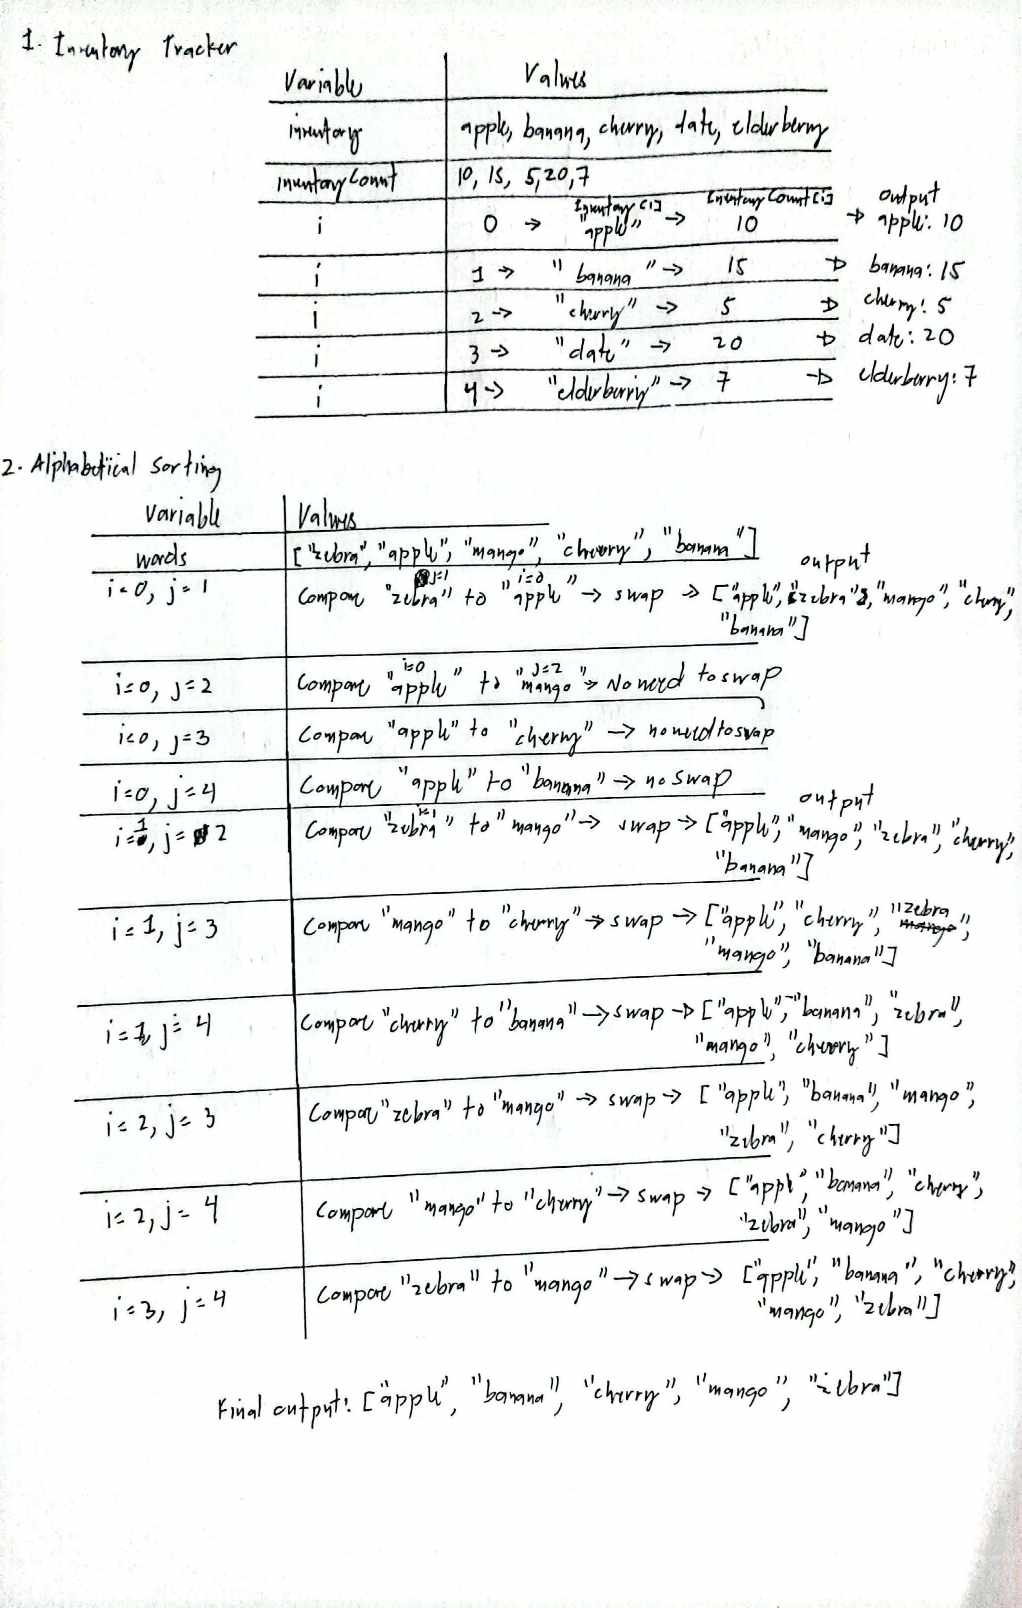 1. Inventory Tracker
Variable Values
inventory apple, banana, cherry, date, elderberry
inventoryCount 10, 15, 5, 20, 7
Inventory [i] Inventory Count [i] output
i 0 → "apple" → 10 → apple: 10
i 1 → "banana" → 15 → banana: 15
i 2 → "cherry" → 5 → cherry: 5
i 3 → "date" → 20 → date: 20
i 4 → "elderberry" → 7 → elderberry: 7
2. Alphabetical Sorting
Variable Values
words ["zebra", "apple", "mango", "cherry", "banana"]
output
j=1 i=0
i=0, j=1 Compare "zebra" to "apple" → swap → ["apple", "zebra", "mango", "cherry",
"banana"]
i=0 j=2
i=0, j=2 Compare "apple" to "mango" → No need to swap
i=0, j=3 Compare "apple" to "cherry" → no need to swap
i=0, j=4 Compare "apple" to "banana" → no swap
output
i=1
i=1, j=2 Compare "zebra" to "mango" → swap → ["apple", "mango", "zebra", "cherry",
"banana"]
i=1, j=3 Compare "mango" to "cherry" → swap → ["apple", "cherry", "zebra",
"mango", "banana"]
i=1, j=4 Compare "cherry" to "banana" → swap → ["apple", "banana", "zebra",
"mango", "cherry"]
i=2, j=3 Compare "zebra" to "mango" → swap → ["apple", "banana", "mango",
"zebra", "cherry"]
i=2, j=4 Compare "mango" to "cherry" → swap → ["apple", "banana", "cherry",
"zebra", "mango"]
i=3, j=4 Compare "zebra" to "mango" → swap → ["apple", "banana", "cherry",
"mango", "zebra"]
Final output: ["apple", "banana", "cherry", "mango", "zebra"]